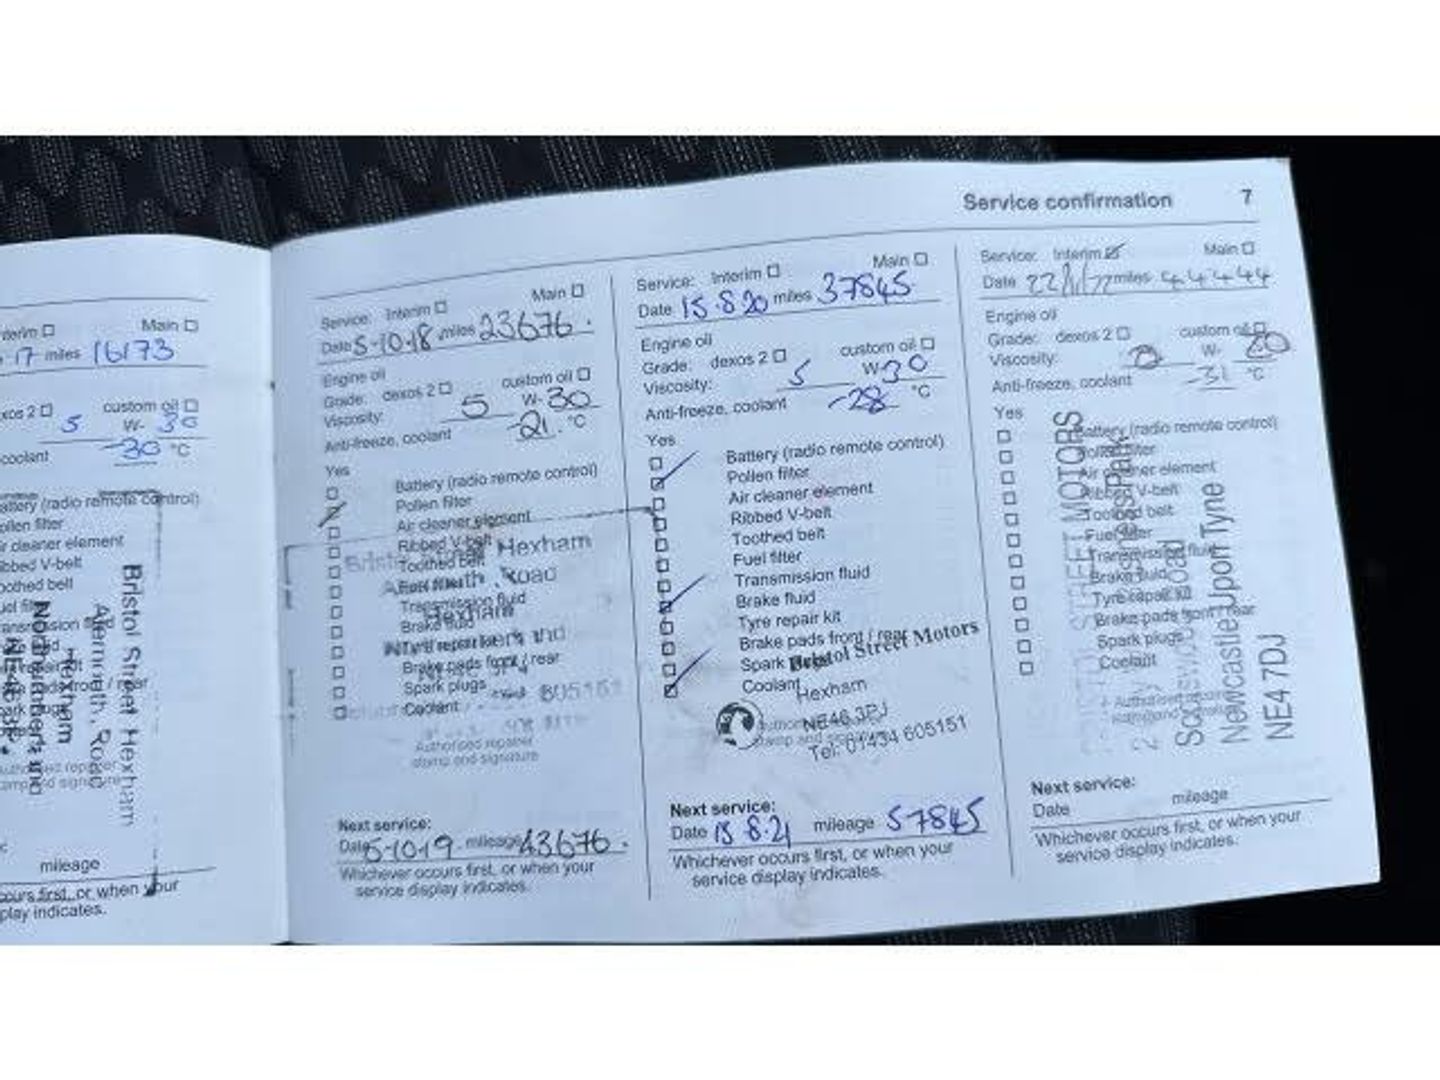 Service confirmation 7
nterim Main
17 miles 16173
xos 2 custom oil
5 W- 30
coolant -30 °C
attery (radio remote control)
ollen filter
ir cleaner element
ibbed V-belt
oothed belt
Bristol Street Hexham
Alemouth Road
Hexham
Northumberland
mileage
ccurs first, or when your
play indicates.
Service: Interim Main
Date 5-10-18 miles 23676.
Engine oil
Grade: dexos 2 custom oil
Viscosity: 5 W-30
Anti-freeze, coolant -21 °C
Yes
Battery (radio remote control)
Pollen filter
Air cleaner element
Ribbed V-belt
Toothed belt
Fuel filter
Transmission fluid
Brake fluid
Tyre repair kit
Brake pads front / rear
Spark plugs
Coolant
Hexham
Road
Hexham
605151
Authorised repairer
stamp and signature
Next service:
Date 5-10-19 mileage 43676.
Whichever occurs first, or when your
service display indicates.
Service: Interim Main
Date 15.8.20 miles 37845
Engine oil
Grade: dexos 2 custom oil
Viscosity: 5 W-30
Anti-freeze, coolant -28 °C
Yes
Battery (radio remote control)
Pollen filter
Air cleaner element
Ribbed V-belt
Toothed belt
Fuel filter
Transmission fluid
Brake fluid
Tyre repair kit
Brake pads front / rear
Spark
Coolant
Bristol Street Motors
Hexham
NE46 3PJ
Tel: 01434 605151
Next service:
Date 15 8.21 mileage 57845
Whichever occurs first, or when your
service display indicates.
Service: Interim Main
Date 22/11/22 miles 44444
Engine oil
Grade: dexos 2 custom oil
Viscosity: 0 W- 20
Anti-freeze, coolant -31 °C
Yes
Battery (radio remote control)
Pollen filter
Air cleaner element
Ribbed V-belt
Toothed belt
Fuel filter
Transmission fluid
Brake fluid
Tyre repair kit
Brake pads front / rear
Spark plugs
Coolant
BRISTOL STREET MOTORS
Scotswood Road
Newcastle Upon Tyne
NE4 7DJ
Next service:
Date mileage
Whichever occurs first, or when your
service display indicates.